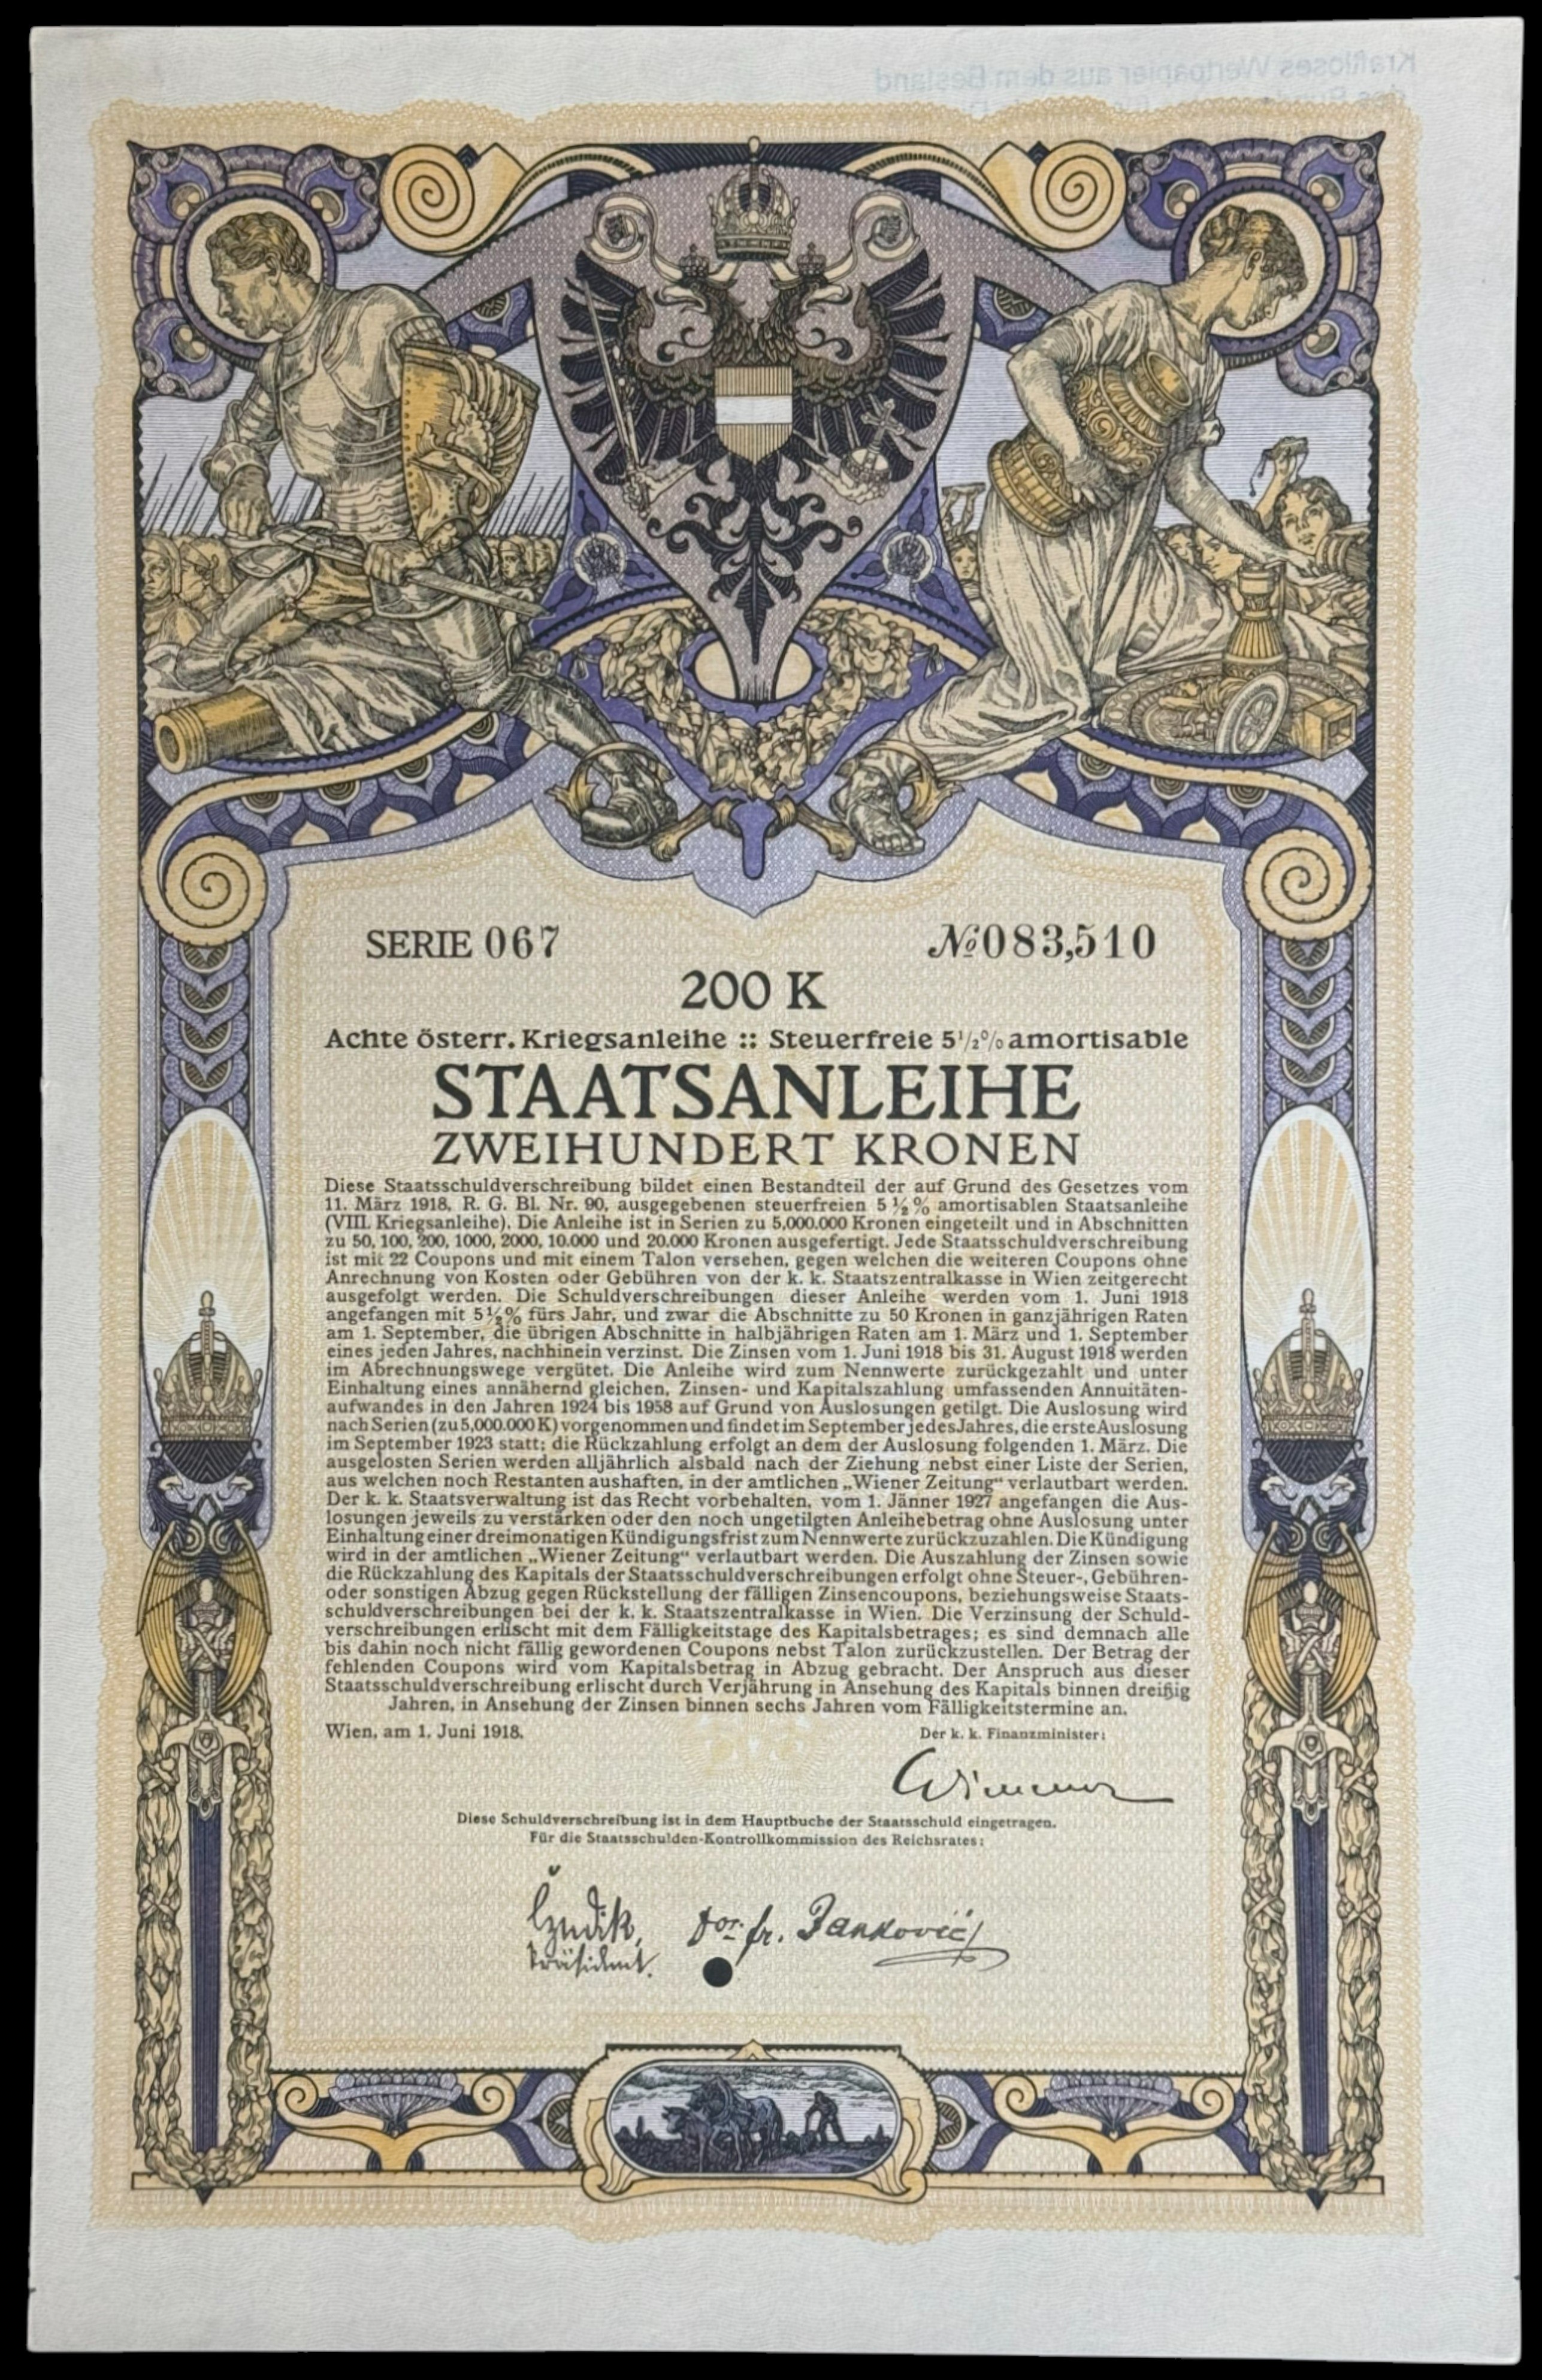 Kraftloses Wertpapier aus dem Bestand
SERIE 067
№083,510
200 K
Achte österr. Kriegsanleihe :: Steuerfreie 5½% amortisable
STAATSANLEIHE
ZWEIHUNDERT KRONEN
Diese Staatsschuldverschreibung bildet einen Bestandteil der auf Grund des Gesetzes vom
11. März 1918, R. G. Bl. Nr. 90, ausgegebenen steuerfreien 5 ½% amortisablen Staatsanleihe
(VIII. Kriegsanleihe). Die Anleihe ist in Serien zu 5,000.000 Kronen eingeteilt und in Abschnitten
zu 50, 100, 200, 1000, 2000, 10.000 und 20.000 Kronen ausgefertigt. Jede Staatsschuldverschreibung
ist mit 22 Coupons und mit einem Talon versehen, gegen welchen die weiteren Coupons ohne
Anrechnung von Kosten oder Gebühren von der k. k. Staatszentralkasse in Wien zeitgerecht
ausgefolgt werden. Die Schuldverschreibungen dieser Anleihe werden vom 1. Juni 1918
angefangen mit 5½% fürs Jahr, und zwar die Abschnitte zu 50 Kronen in ganzjährigen Raten
am 1. September, die übrigen Abschnitte in halbjährigen Raten am 1. März und 1. September
eines jeden Jahres, nachhinein verzinst. Die Zinsen vom 1. Juni 1918 bis 31. August 1918 werden
im Abrechnungswege vergütet. Die Anleihe wird zum Nennwerte zurückgezahlt und unter
Einhaltung eines annähernd gleichen, Zinsen- und Kapitalszahlung umfassenden Annuitäten-
aufwandes in den Jahren 1924 bis 1958 auf Grund von Auslosungen getilgt. Die Auslosung wird
nach Serien (zu 5,000.000 K) vorgenommen und findet im September jedes Jahres, die erste Auslosung
im September 1923 statt; die Rückzahlung erfolgt an dem der Auslosung folgenden 1. März. Die
ausgelosten Serien werden alljährlich alsbald nach der Ziehung nebst einer Liste der Serien,
aus welchen noch Restanten aushaften, in der amtlichen „Wiener Zeitung“ verlautbart werden.
Der k. k. Staatsverwaltung ist das Recht vorbehalten, vom 1. Jänner 1927 angefangen die Aus-
losungen jeweils zu verstärken oder den noch ungetilgten Anleihebetrag ohne Auslosung unter
Einhaltung einer dreimonatigen Kündigungsfrist zum Nennwerte zurückzuzahlen. Die Kündigung
wird in der amtlichen „Wiener Zeitung“ verlautbart werden. Die Auszahlung der Zinsen sowie
die Rückzahlung des Kapitals der Staatsschuldverschreibungen erfolgt ohne Steuer-, Gebühren-
oder sonstigen Abzug gegen Rückstellung der fälligen Zinsencoupons, beziehungsweise Staats-
schuldverschreibungen bei der k. k. Staatszentralkasse in Wien. Die Verzinsung der Schuld-
verschreibungen erlischt mit dem Fälligkeitstage des Kapitalsbetrages; es sind demnach alle
bis dahin noch nicht fällig gewordenen Coupons nebst Talon zurückzustellen. Der Betrag der
fehlenden Coupons wird vom Kapitalsbetrag in Abzug gebracht. Der Anspruch aus dieser
Staatsschuldverschreibung erlischt durch Verjährung in Ansehung des Kapitals binnen dreißig
Jahren, in Ansehung der Zinsen binnen sechs Jahren vom Fälligkeitstermine an.
Wien, am 1. Juni 1918.
Der k. k. Finanzminister:
Wimmer
Diese Schuldverschreibung ist in dem Hauptbuche der Staatsschuld eingetragen.
Für die Staatsschulden-Kontrollkommission des Reichsrates:
Präsident.
Dor. fr. Janković